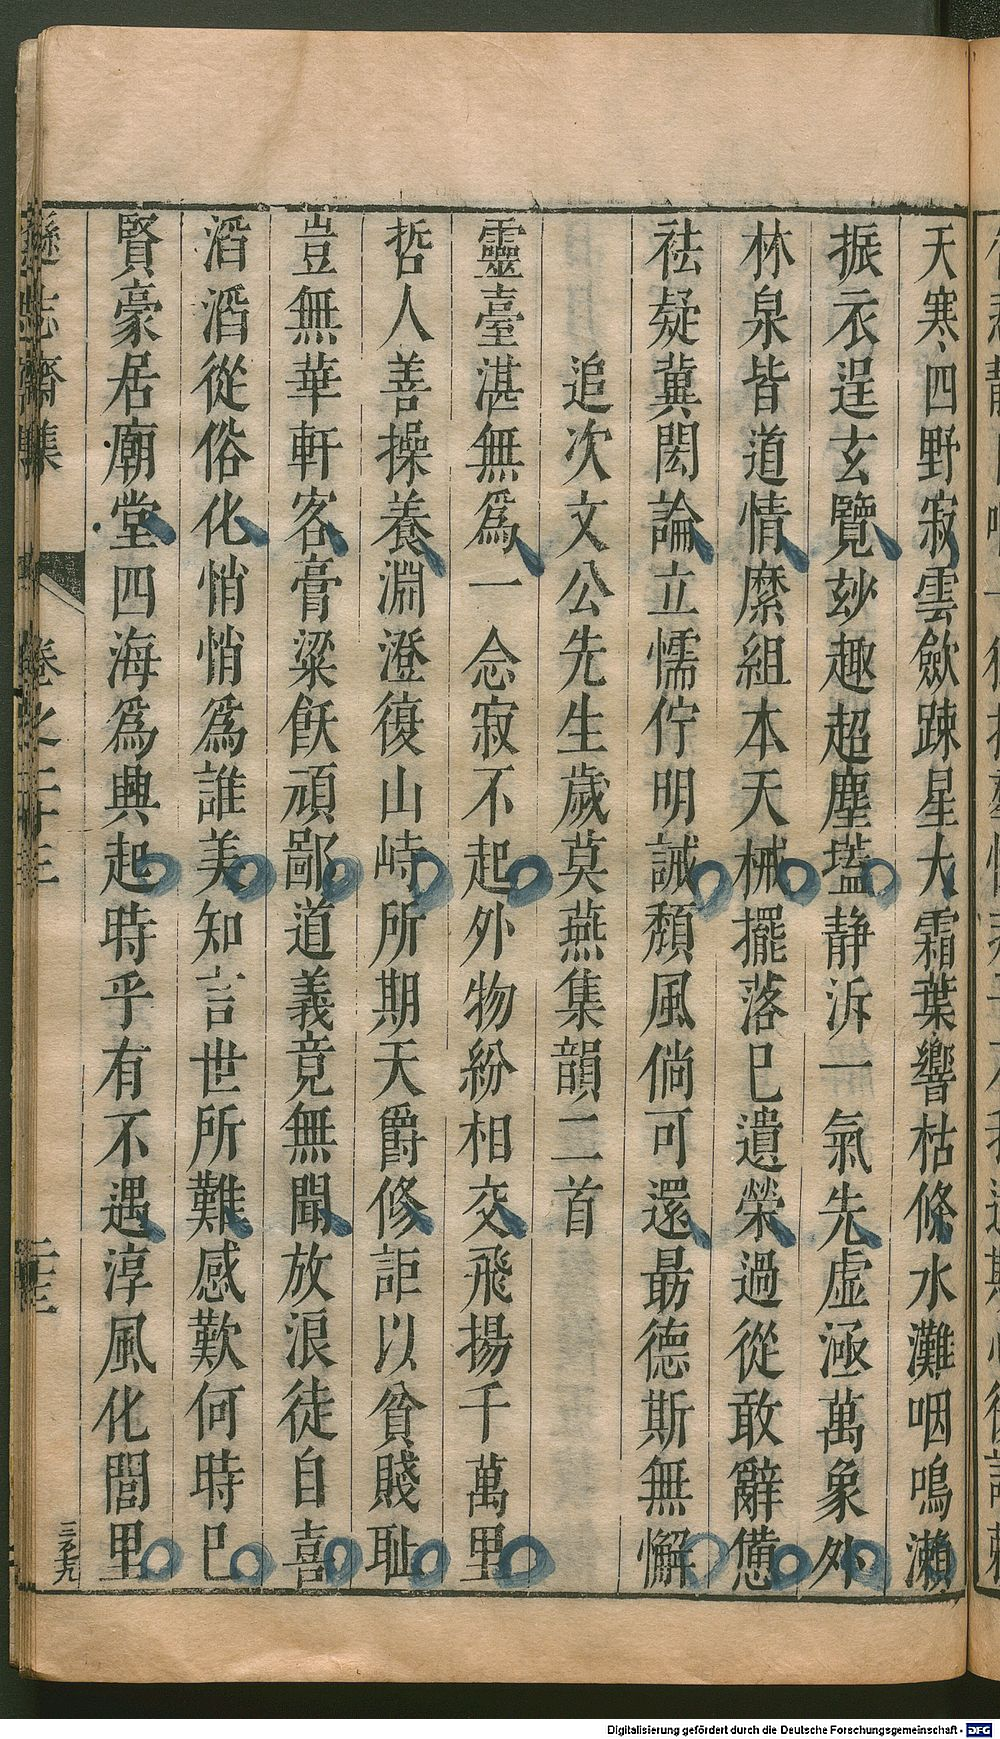 天寒四野寂雲歛踈星大霜葉響枯條水灘咽鳴瀨
振衣逞玄覽玅趣超塵壒静泝一氣先虛極萬象外
林泉皆道情縻組本天械擺落巳遺榮過從敢辭憊
袪疑冀閎論立懦佇明誡頹風倘可還最德斯無懈
追次文公先生歲莫燕集韻二首
靈臺湛無爲一念寂不起外物紛相交飛揚千萬里
哲人善操養淵澄復山峙所期天爵修詎以貧賤耻
豈無華軒客膏粱飫頑鄙道義竟無聞放浪徒自喜
滔滔從俗化悄悄爲誰美知言世所難感歎何時巳
賢豪居廟堂四海爲興起時乎有不遇淳風化閭里
遜志齋集
卷之二十三
二十三
三百七九
Digitalisierung gefördert durch die Deutsche Forschungsgemeinschaft - DFG